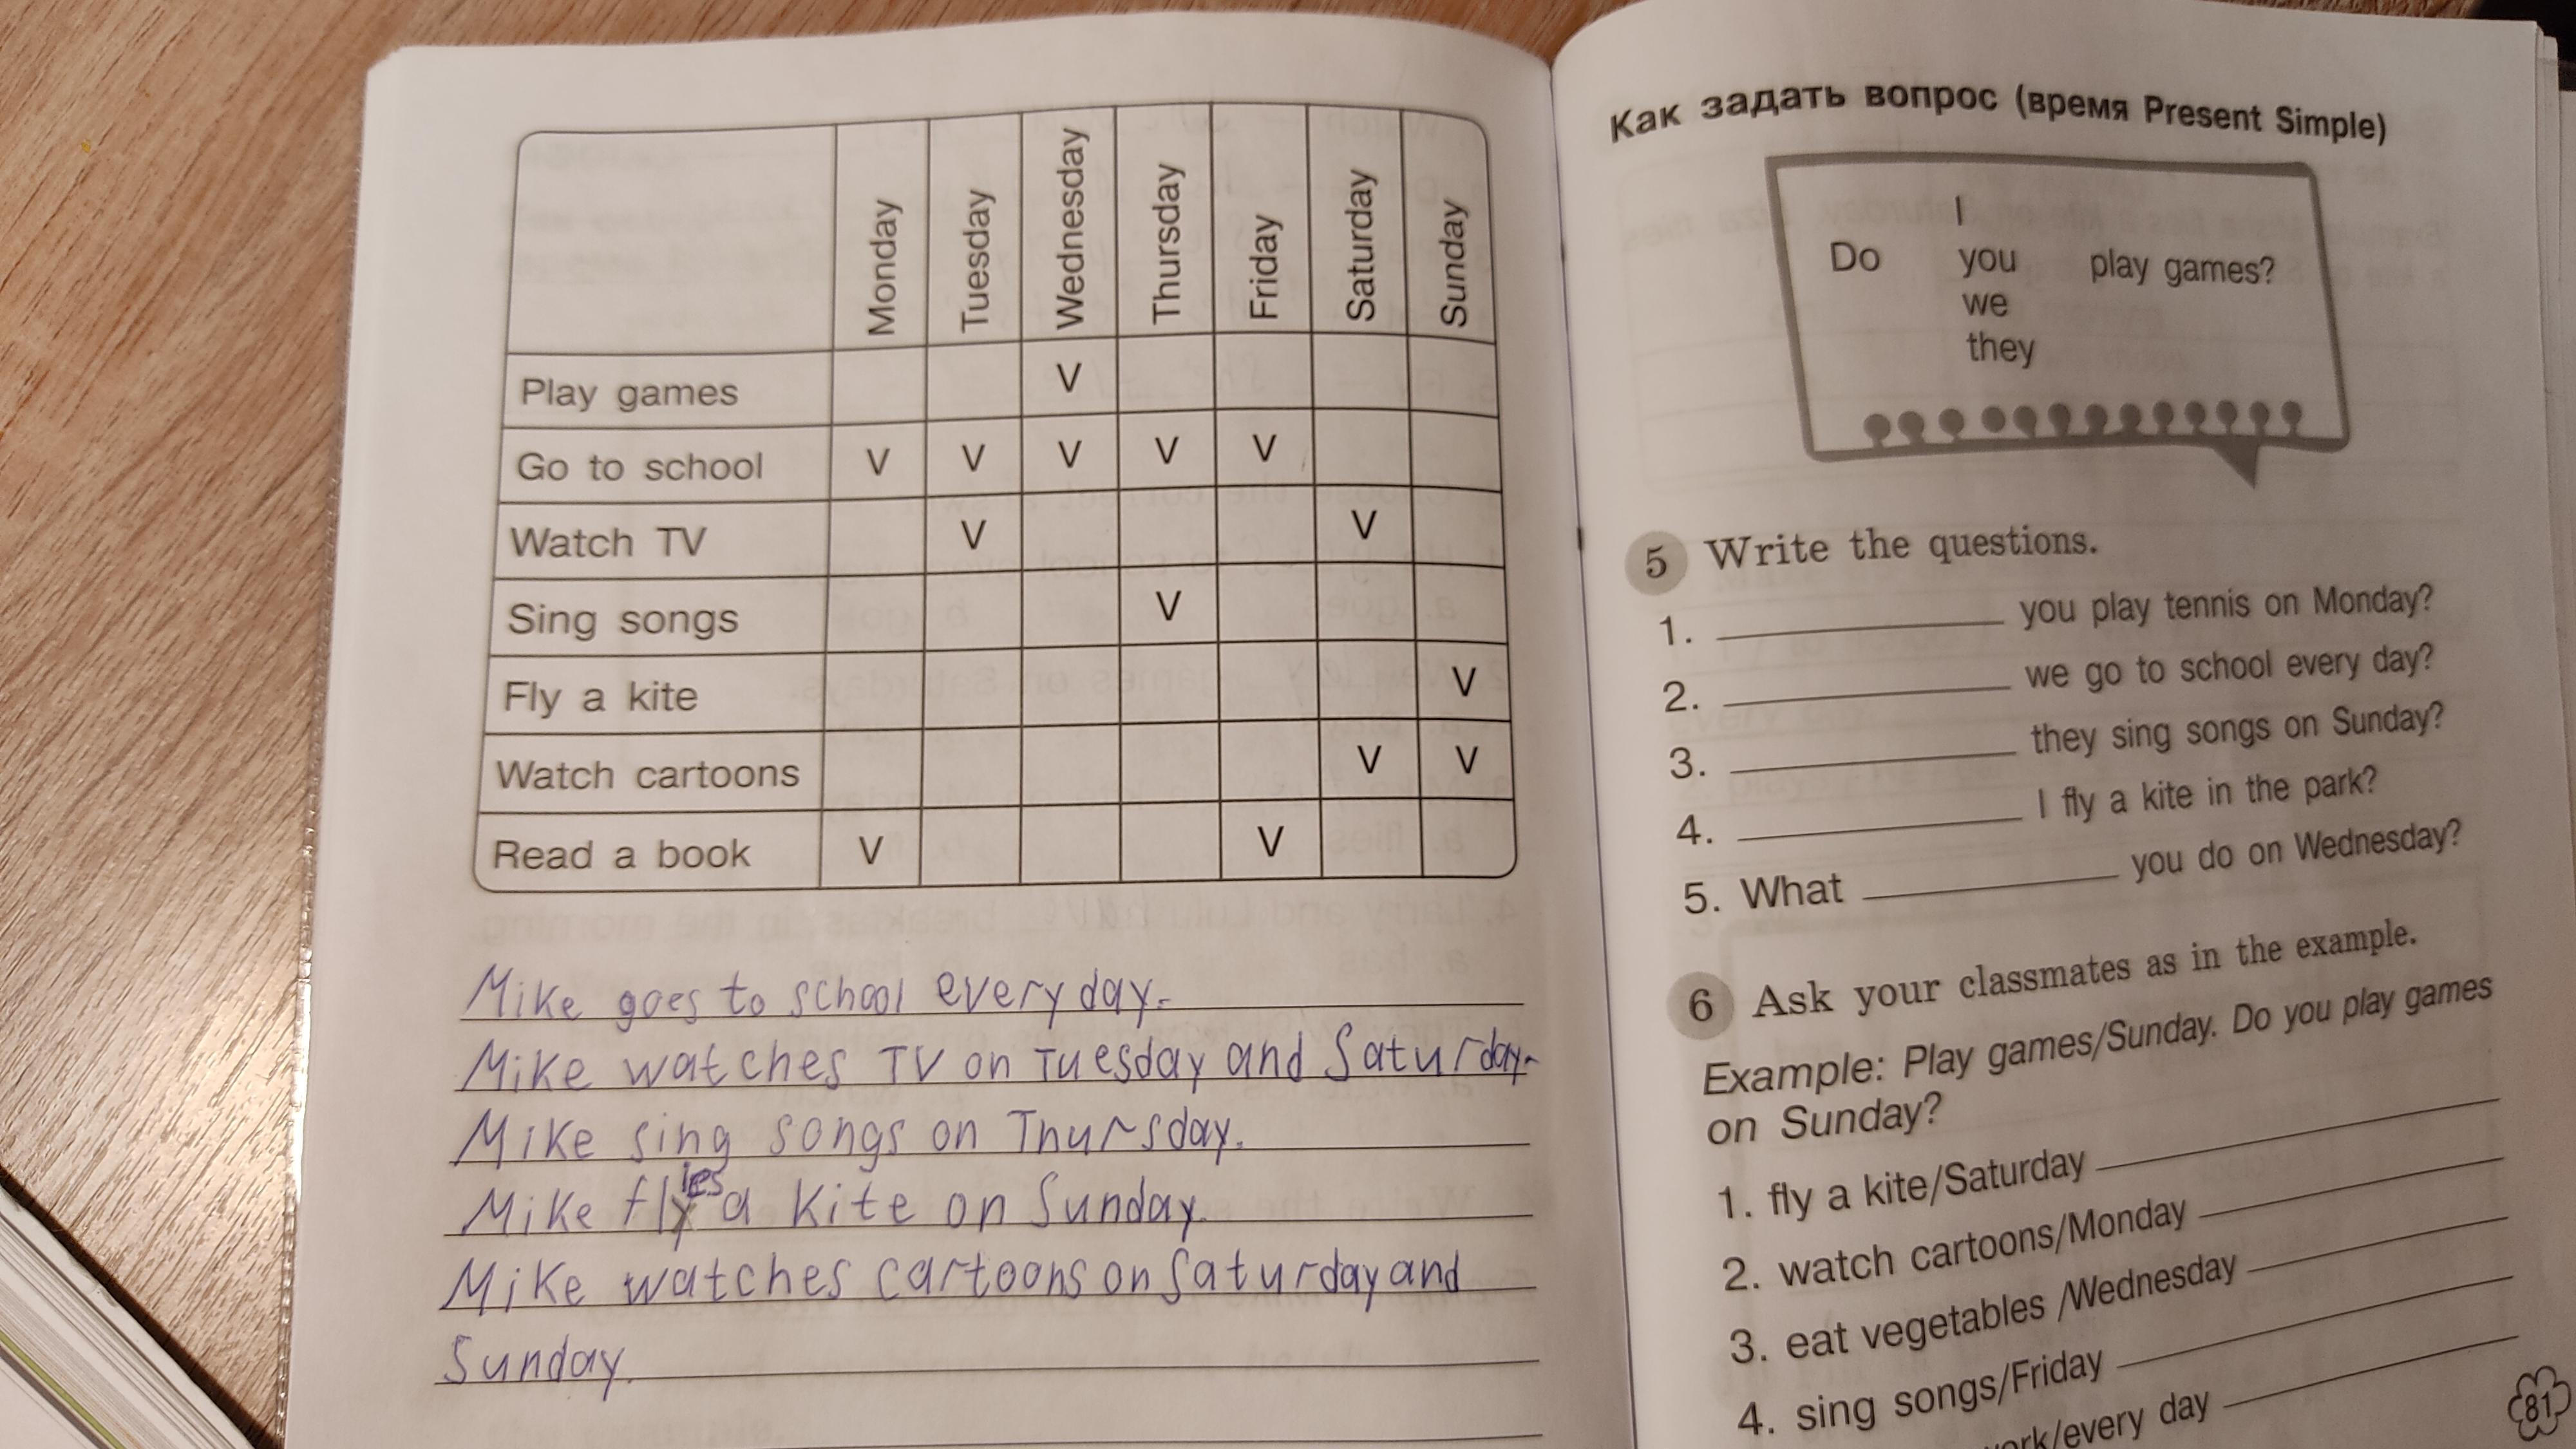 Monday Tuesday Wednesday Thursday Friday Saturday Sunday
Play games V
Go to school V V V V V
Watch TV V V
Sing songs V
Fly a kite V
Watch cartoons V V
Read a book V V
Mike goes to school every day.
Mike watches TV on Tuesday and Saturday.
Mike sing songs on Thursday.
Mike flyies a kite on Sunday.
Mike watches cartoons on Saturday and
Sunday.
Как задать вопрос (время Present Simple)
I
Do you play games?
we
they
5 Write the questions.
1. you play tennis on Monday?
2. we go to school every day?
3. they sing songs on Sunday?
4. I fly a kite in the park?
5. What you do on Wednesday?
6 Ask your classmates as in the example.
Example: Play games/Sunday. Do you play games
on Sunday?
1. fly a kite/Saturday
2. watch cartoons/Monday
3. eat vegetables /Wednesday
4. sing songs/Friday
/every day
81